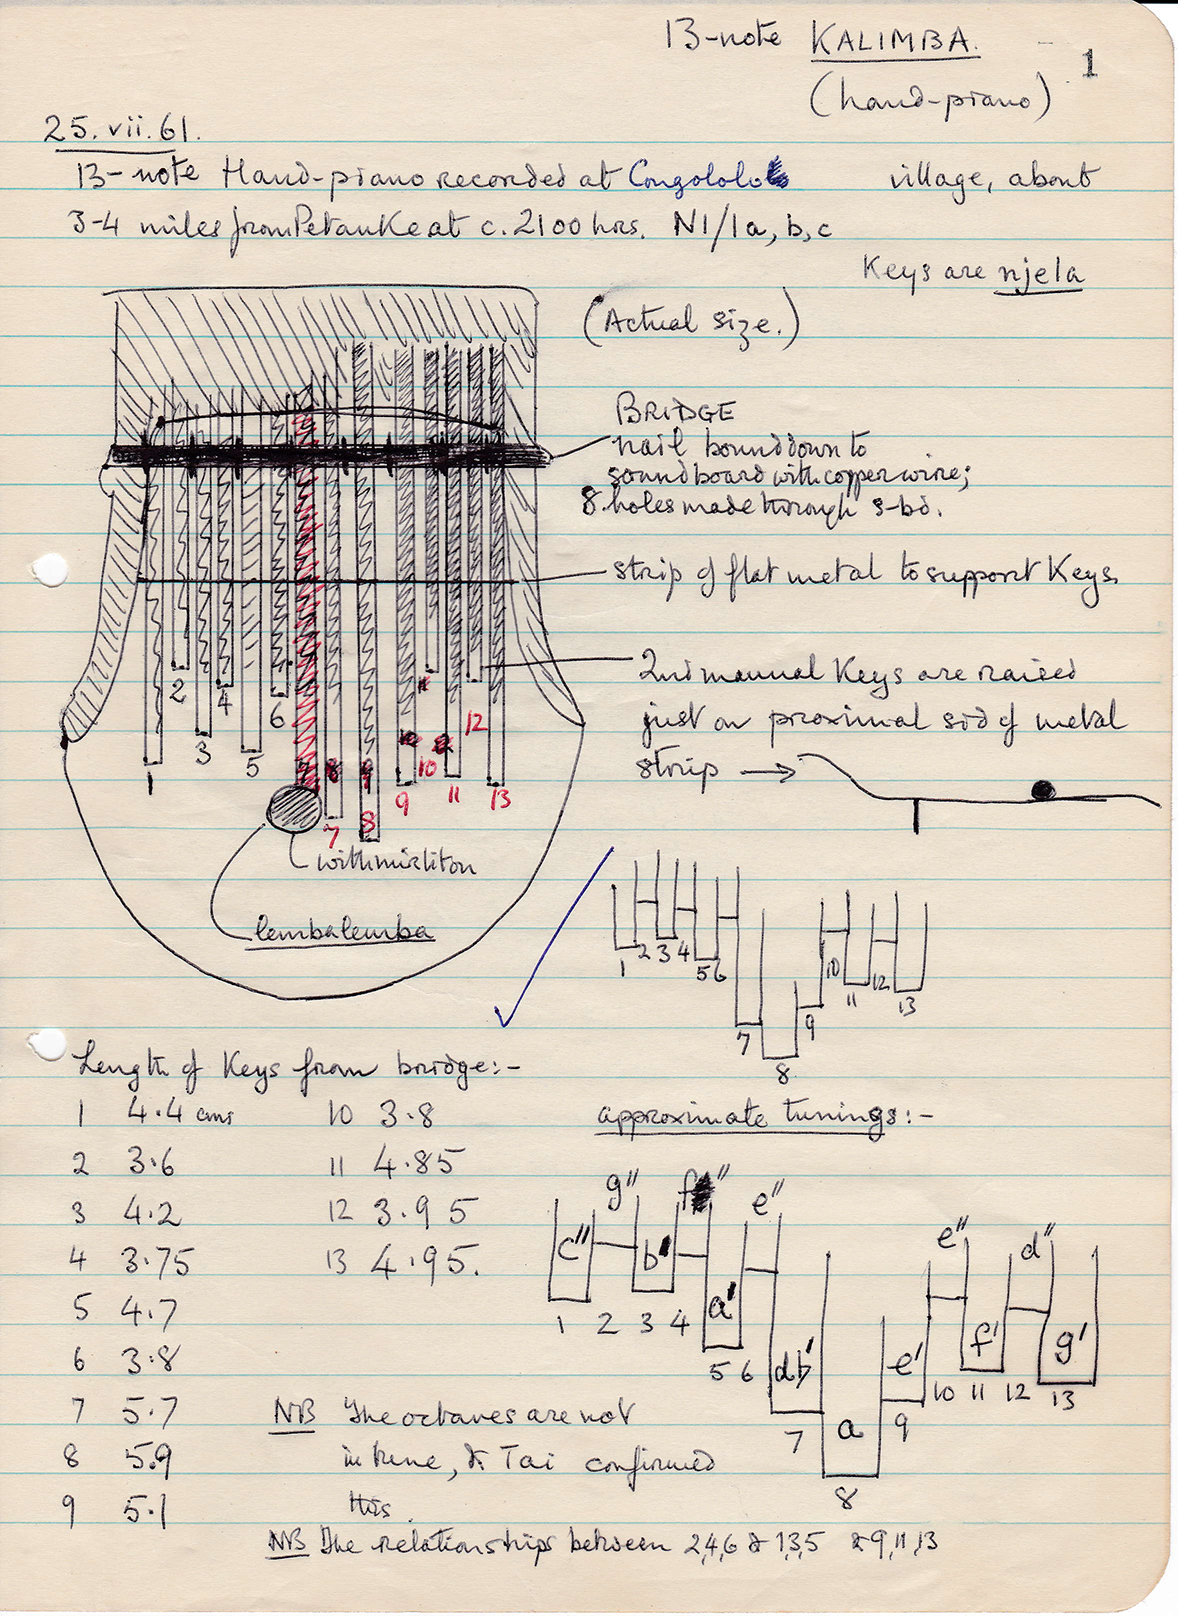 13-note KALIMBA.
1
(hand-piano)
25.vii.61.
13-note Hand-piano recorded at Congololo village, about
3-4 miles from Petauke at c.2100 hrs. N1/1a, b, c
Keys are njela
(Actual size.)
BRIDGE
nail bound down to
soundboard with copper wire;
8 holes made through s-bd.
strip of flat metal to support keys.
2nd manual keys are raised
just on proximal sid of metal
strip →
1 2 3 4 5 6 7 8 9 10 11 12 13
with mirliton
lembalemba
1 2 3 4 5 6 7 8 9 10 11 12 13
Length of keys from bridge:-
1 4.4 cms
2 3.6
3 4.2
4 3.75
5 4.7
6 3.8
7 5.7
8 5.9
9 5.1
10 3.8
11 4.85
12 3.95
13 4.95.
approximate tunings:-
g" f" e" e" d"
c" b' a' db' a e' f' g'
1 2 3 4 5 6 7 8 9 10 11 12 13
NB The octaves are not
in tune, & Tai confirmed
this.
NB The relationships between 2,4,6 & 1,3,5 & 9,11,13